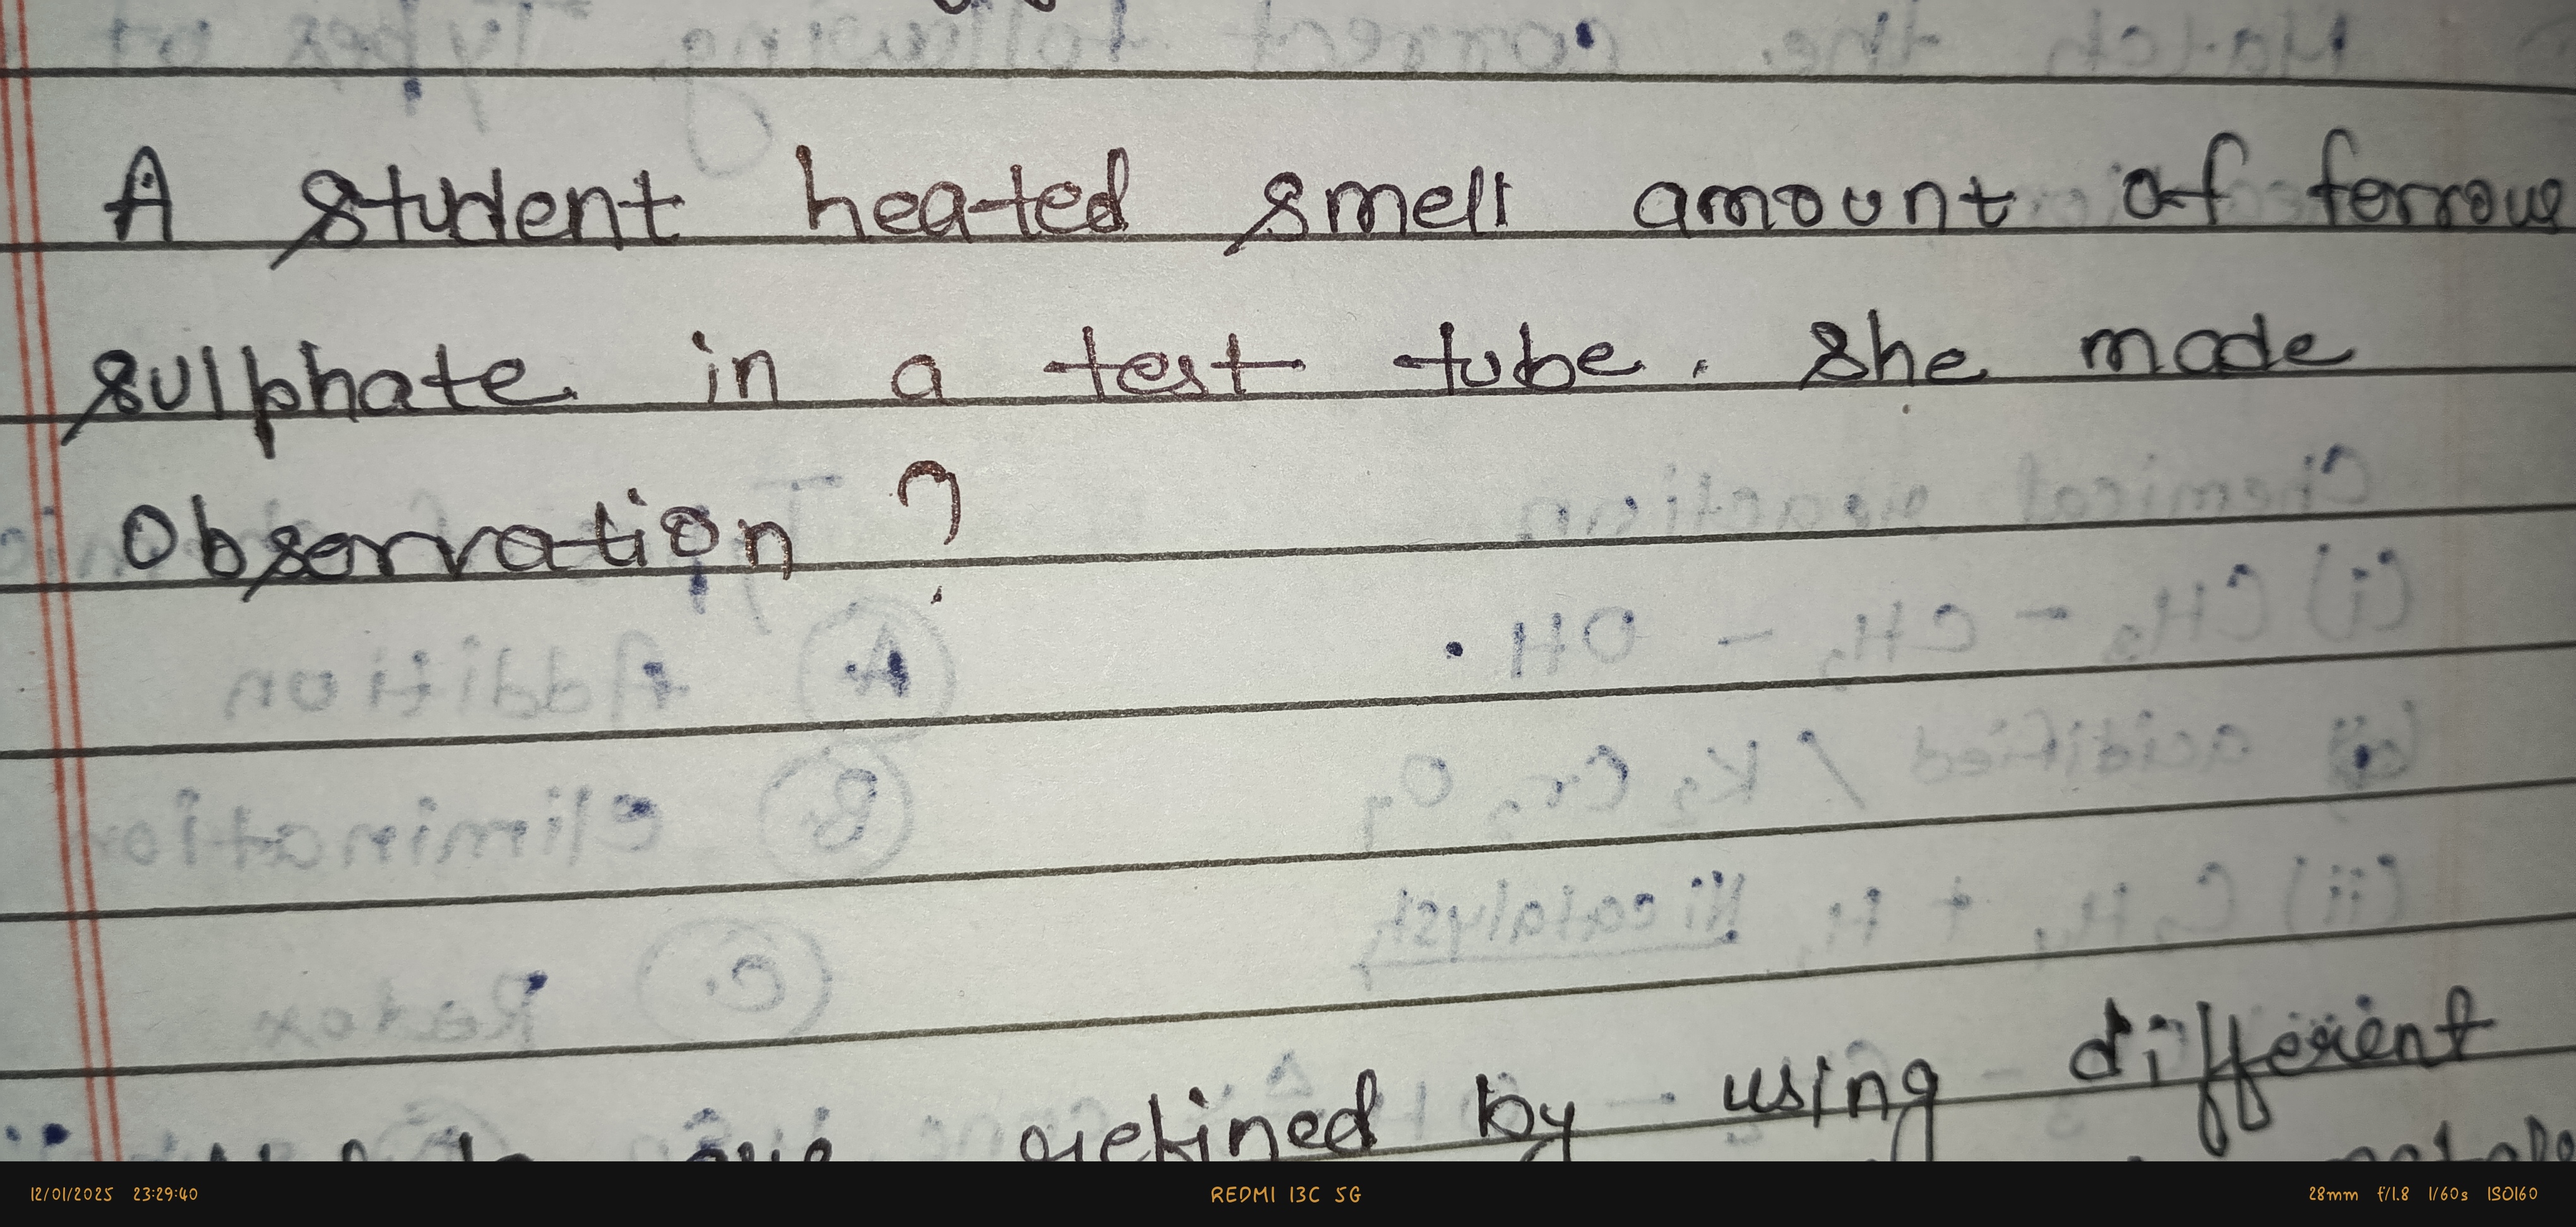 A student heated smell amount of ferrous
sulphate in a test tube. She made
Observation ?
refined by using different
12/01/2025 23:29:40 REDMI 13C 5G 28mm f/1.8 1/60s ISO160